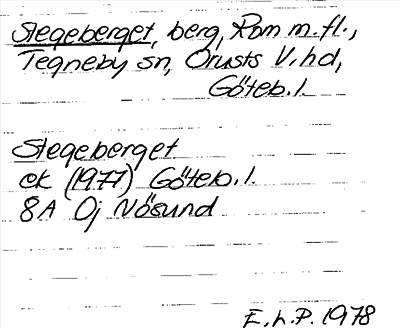 Stegeberget, berg, Röm m.fl.,
Tegneby sn, Orusts V. hd,
Göteb. l.
Stegeberget
ek (1977) Göteb. l.
8A Oj Nösund
E.h.P. 1978